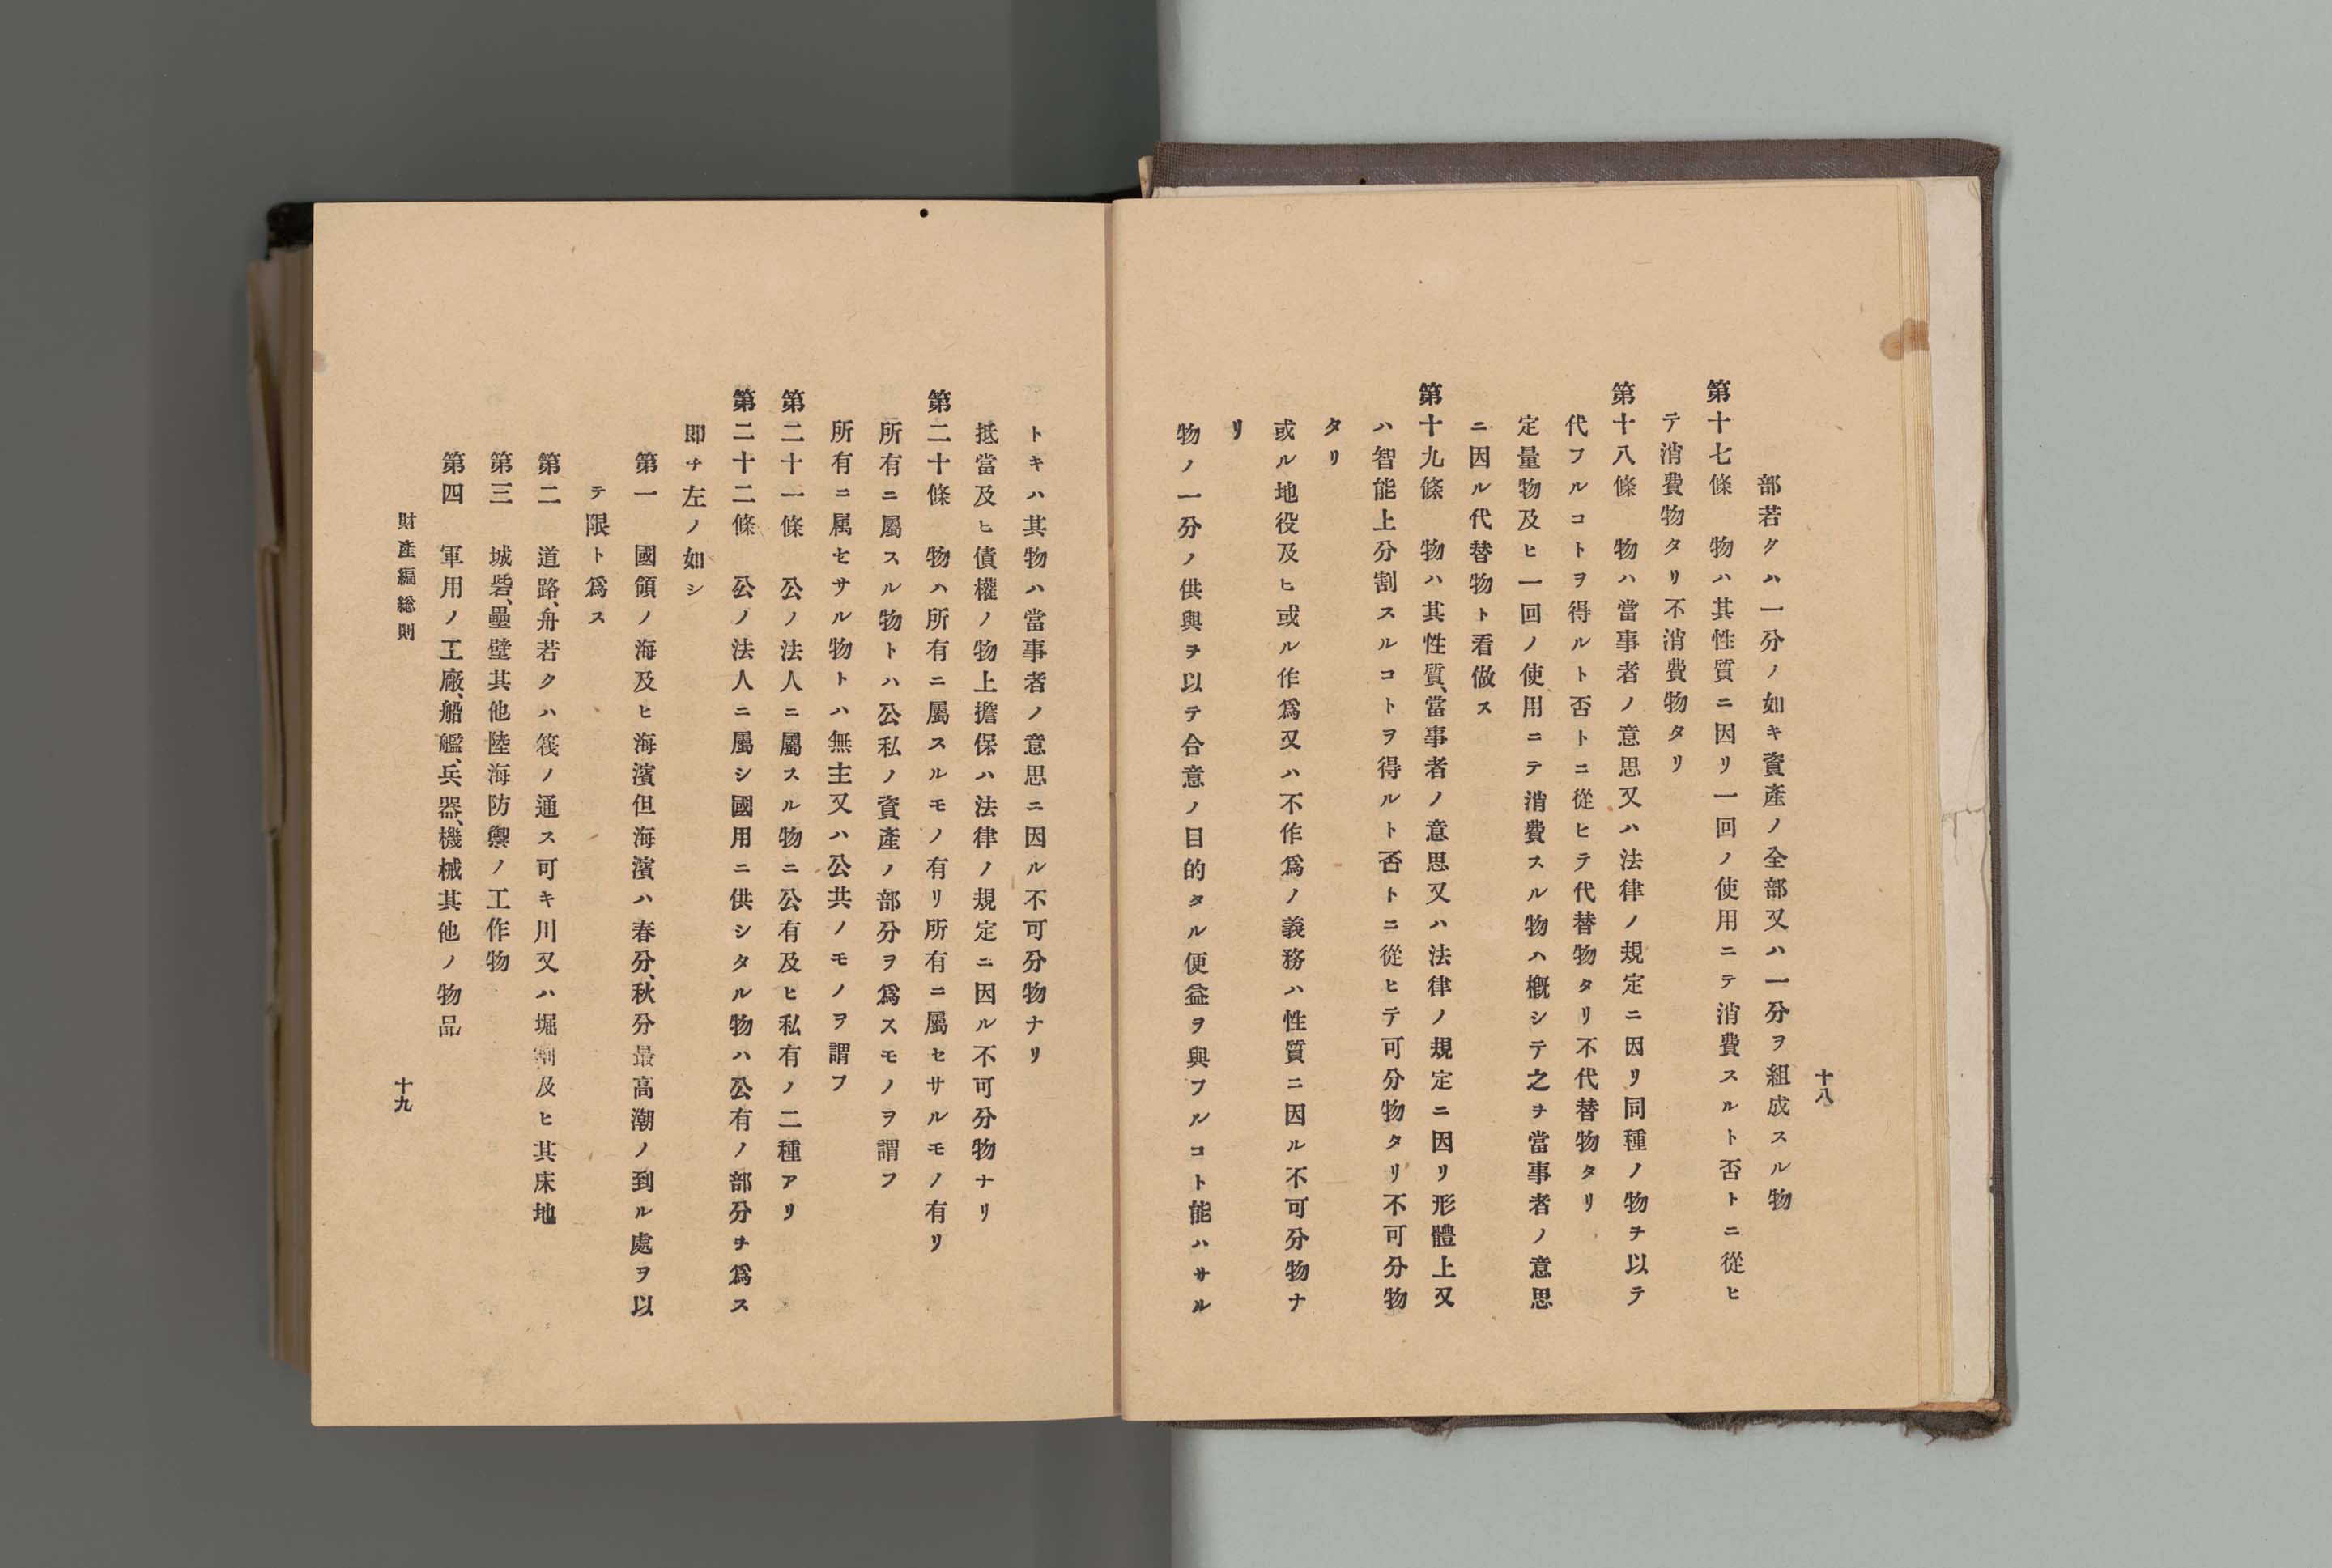 十八
部若クハ一分ノ如キ資產ノ全部又ハ一分ヲ組成スル物
第十七條　物ハ其性質ニ因リ一回ノ使用ニテ消費スルト否トニ從ヒ
テ消費物タリ不消費物タリ
第十八條　物ハ當事者ノ意思又ハ法律ノ規定ニ因リ同種ノ物ヲ以テ
代フルコトヲ得ルト否トニ從ヒテ代替物タリ不代替物タリ
定量物及ヒ一回ノ使用ニテ消費スル物ハ槪シテ之ヲ當事者ノ意思
ニ因ル代替物ト看做ス
第十九條　物ハ其性質、當事者ノ意思又ハ法律ノ規定ニ因リ形體上又
ハ智能上分割スルコトヲ得ルト否トニ從ヒテ可分物タリ不可分物
タリ
或ル地役及ヒ或ル作爲又ハ不作爲ノ義務ハ性質ニ因ル不可分物ナ
リ
物ノ一分ノ供與ヲ以テ合意ノ目的タル便益ヲ與フルコト能ハサル
トキハ其物ハ當事者ノ意思ニ因ル不可分物ナリ
抵當及ヒ債權ノ物上擔保ハ法律ノ規定ニ因ル不可分物ナリ
第二十條　物ハ所有ニ屬スルモノ有リ所有ニ屬セサルモノ有リ
所有ニ屬スル物トハ公私ノ資產ノ部分ヲ爲スモノヲ謂フ
所有ニ属セサル物トハ無主又ハ公共ノモノヲ謂フ
第二十一條　公ノ法人ニ屬スル物ニ公有及ヒ私有ノ二種アリ
第二十二條　公ノ法人ニ屬シ國用ニ供シタル物ハ公有ノ部分ヲ爲ス
即チ左ノ如シ
第一　國領ノ海及ヒ海濱但海濱ハ春分、秋分最高潮ノ到ル處ヲ以
テ限ト爲ス
第二　道路、舟若クハ筏ノ通ス可キ川又ハ堀割及ヒ其床地
第三　城砦、壘壁其他陸海防禦ノ工作物
第四　軍用ノ工廠、船艦、兵器、機械其他ノ物品
財產編総則
十九